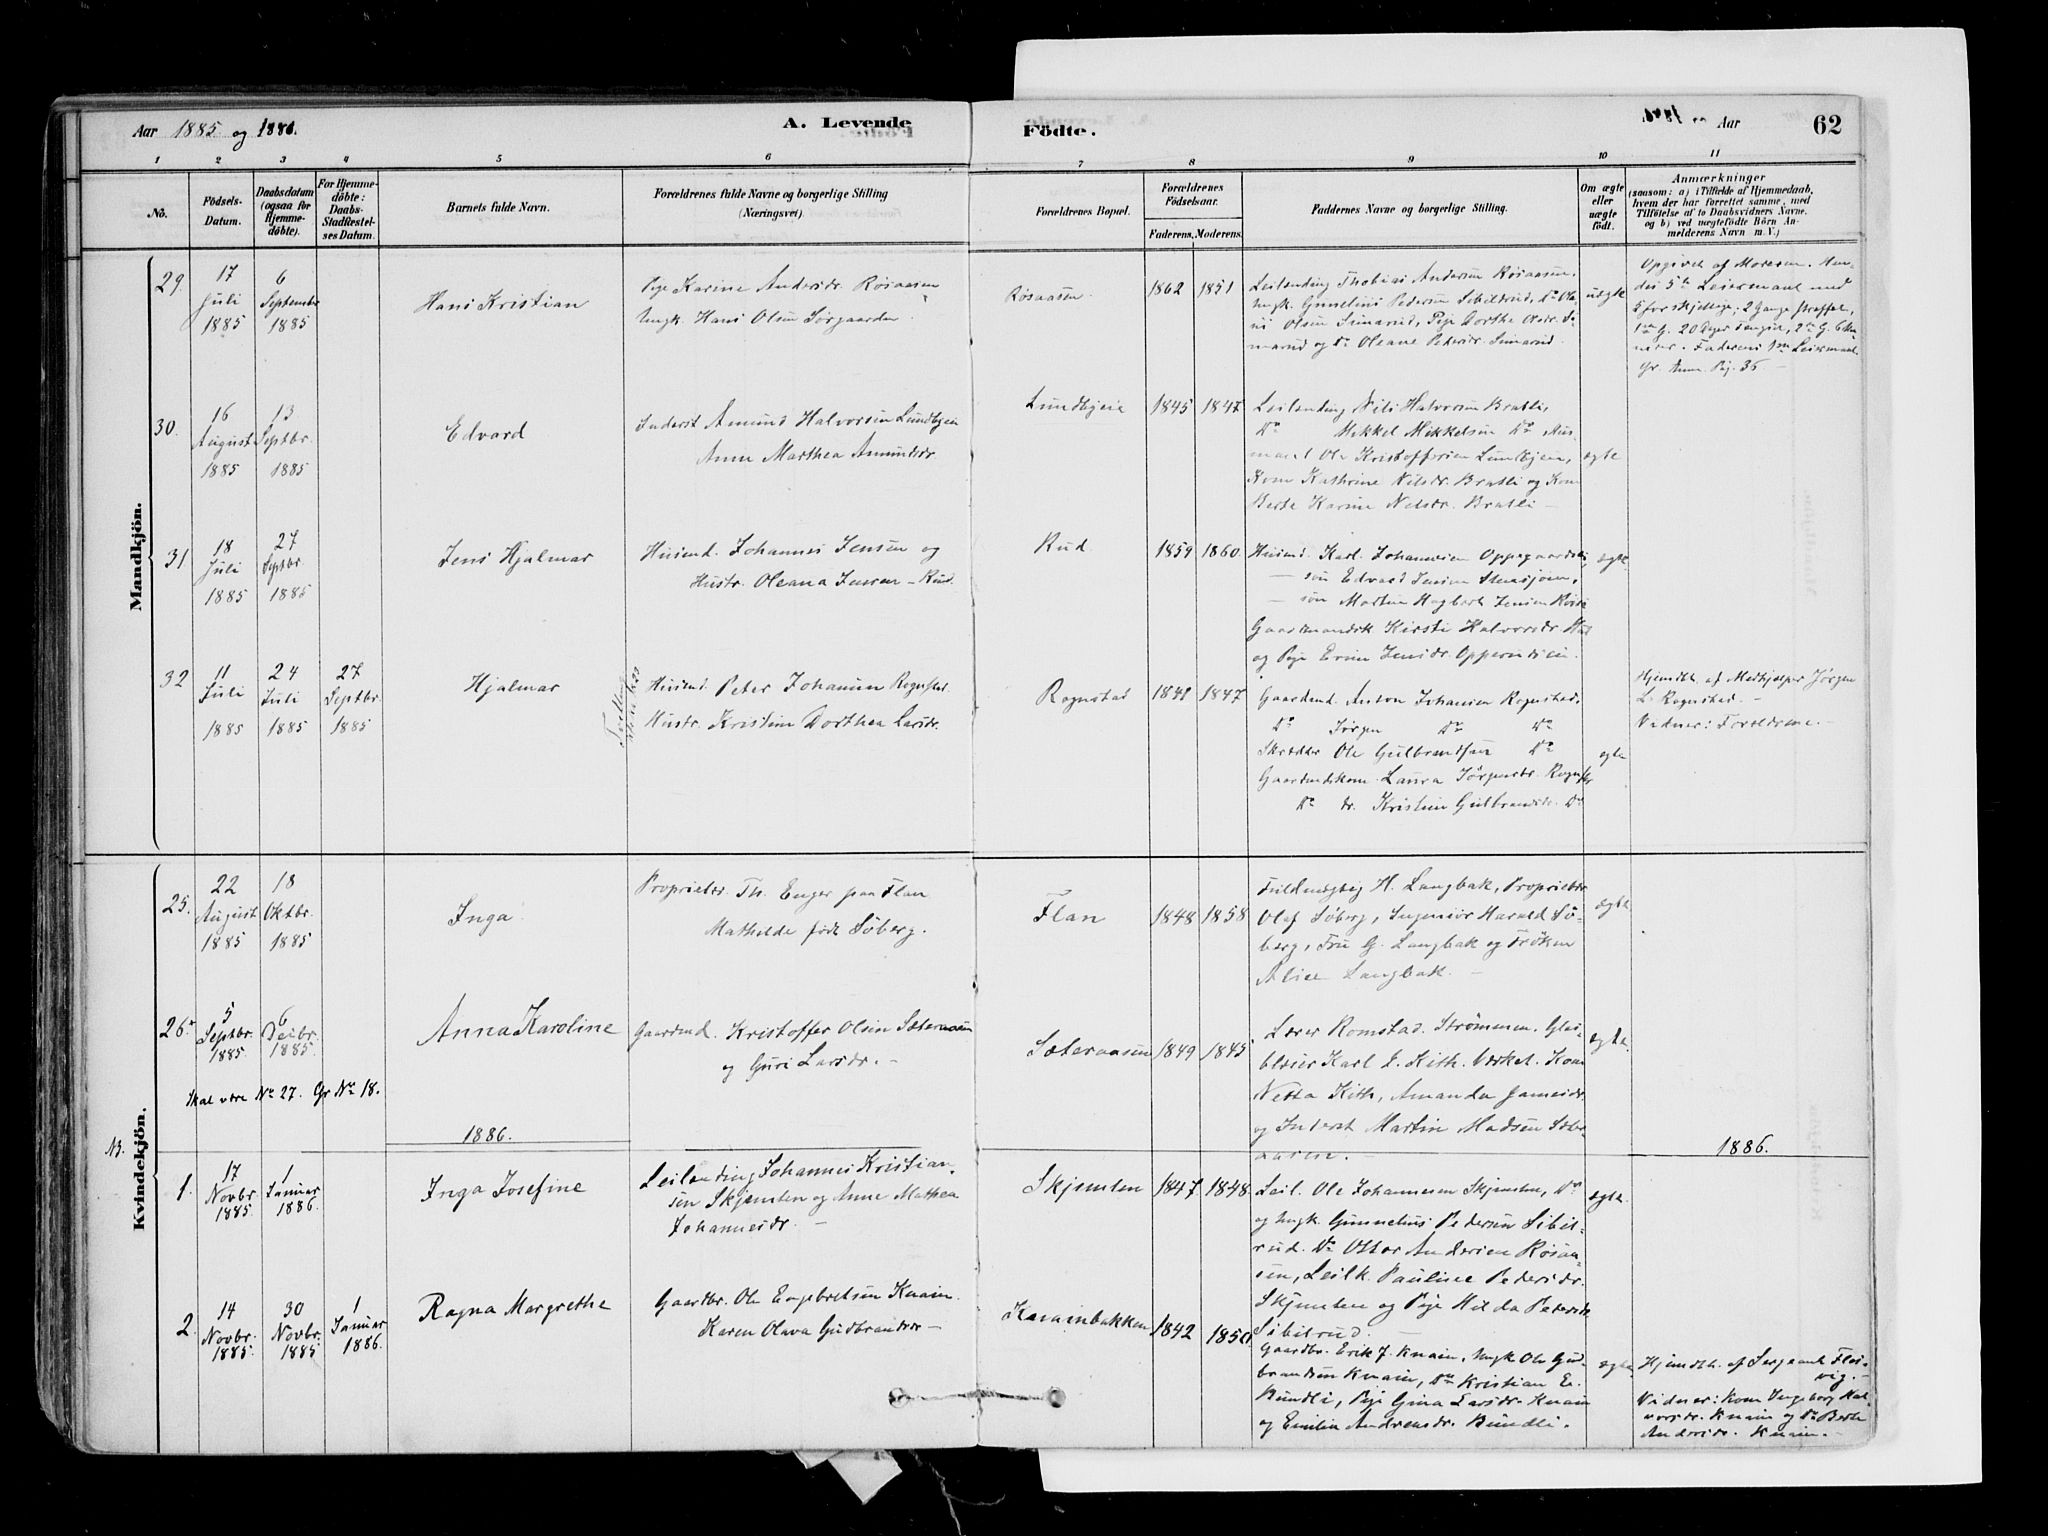 Aar 1885 og 1886.
A. Levende
Födte.
1886.
Aar
62
1 2 3 4 5 6 7 8 9 10 11
No.
Födsels-Datum.
Daabsdatum (ogsaa for Hjemme-döbte).
For Hjemme-döbte: Daabs-Stadfæstelses Datum.
Barnets fulde Navn.
Forældrenes fulde Navne og borgerlige Stilling
(Næringsvei).
Forældrenes Bopæl.
Forældrenes Födselsaar.
Faderens. Moderens.
Faddernes Navne og borgerlige Stilling.
Om ægte eller uægte födt.
Anmærkninger
(saasom: a) i Tilfælde af Hjemmedaab,
hvem der har forrettet samme, med
Tilföielse af to Daabsvidners Navne,
og b) ved uægtefödte Börn An-
melderens Navn m. V.)
Mandkjön.
29.
17 Juli 1885
6 September 1885
Hans Kristian
Pige Karine Andersdr. Røsaasen
Ungk. Hans Olsen Sørgaarden
Røsaasen
1862 1851
Leilending Thobias Andersen Røsaasen,
Ungk. Gunnelius Pedersen Sibilrud, Do
Olsen Simarud, Pige Dorthe Olsdr. Si-
marud og Do Oleane Pedersdr. Simarud.
uægte
Opgivet af Moderen. Hen-
des 5te Leiermaal med
5 forskjellige; 2 Gange straffet,
1ste G. 20 Dager Fængsel, 2den G. 6
Faderens 1ste Leiermaal.
Gr. Anm. Pig. 36 —
30.
16 August 1885
13 Septbr. 1885
Edvard
Inderst Amund Halvorsen Lundbyeie
Anne Marthea Amundsdr.
Lundbyeie
1845 1847
Leilending Nils Halvorsen Bratli,
Do Mikkel Mikkelsen Do Hus-
mand Ole Kristoffersen Lundbyeie,
Kone Kathrine Nilsdr. Bratli og Kone
Berte Karine Nilsdr. Bratli —
ægte
31
18 Juli 1885
27 Septbr. 1885
Jens Hjalmar
Husmd. Johannes Jensen og
Hustr. Oleana Jensen — Rud.
Rud
1859 1860
Husmd. Karl Johannesen Oppegaardeie,
— søn Edvard Jensen Stensjøen,
— søn Martin Hagbart Jensen
Gaardmandsk Kirsti Halvorsdr.
og Pige Jensdr.
ægte
32
11 Juli 1885
24 Juli 1885
27 Septbr. 1885
Hjalmar
Husmd. Peter Johansen Rognstad
Hustr. Kristine Dorthea Larsdr.
Rognstad
1841 1847
Gaardmd. Anton Johansen Rognstad,
Do Jørgen Do Do
Skrædder Ole Gulbrandsen Do
Gaardmdskone Laura Jörgensdr. Rognstad
Do dr. Kristine Gulbrandsdr. Do
ægte
Hjemdbt. af Medhjælper Jørgen
L. Rognstad.
Vidner: Forældrene. —
Kvindekjön.
25.
22 August 1885
18 Oktbr. 1885
Inga
Proprietær Th. Enger paa Flan
Mathilde født Söberg.
Flan
1848 1858
Fuldmægtig H. Langbak, Proprietær
Olaf Söberg, Ingeniør Harald Sö-
berg, Fru G. Langbak og Frøken
Alice Langbak. —
ægte
26.
5 Septbr. 1885
6 Decbr. 1885
Anna Karoline
Gaardmd. Kristoffer Olsen Sæteraasen
og Guri Larsdr. —
Sæteraasen
1849 1845
Lærer Romstad. Strømmen. Glas-
blæser Karl J. Kith. Værket. Kone
Netta Kith, Amanda
og Inderst Martin Madsen Sæter-
aasen. —
ægte.
Skal være No 27. Gr No 18.
1886.
1886.
1.
17 Novbr 1885.
1 Januar 1886.
Inga Josefine
Leilending Johannes Kristian-
sen Skjemten og Anne Mathea
Johannesdr. —
Skjemten
1847 1848
Leil. Ole Johannesen Skjemten, Do
og Ungk. Gunnelius Pedersen Sibil-
rud. Do Ottar Andersen Røsaa-
sen, Leilk. Pauline Pedersdr.
Skjemten og Pige Hilda Pedersdr.
Sibilrud. —
ægte
2.
14 Novbr. 1885.
30 Novbr. 1885
1 Januar 1886.
Ragna Margrethe
Gaardbr. Ole Engebretsen Knain.
Karen Olava Gudbrandsdr —
Knainbakken
1842 1850
Gaardbr. Erik J. Knain, Ungk Ole Gud-
brandsen Knain, Do Kristian E.
Bundli, Pige Gina Larsdr. Knain
og Emilie Andreasdr. Bundli.
ægte
Hjemdbt. af Sergeant Fles-
vig. —
Vidner: Kone Ingeborg Hal-
vorsdr. Knain og Do Berte
Andersdr. Knain. —